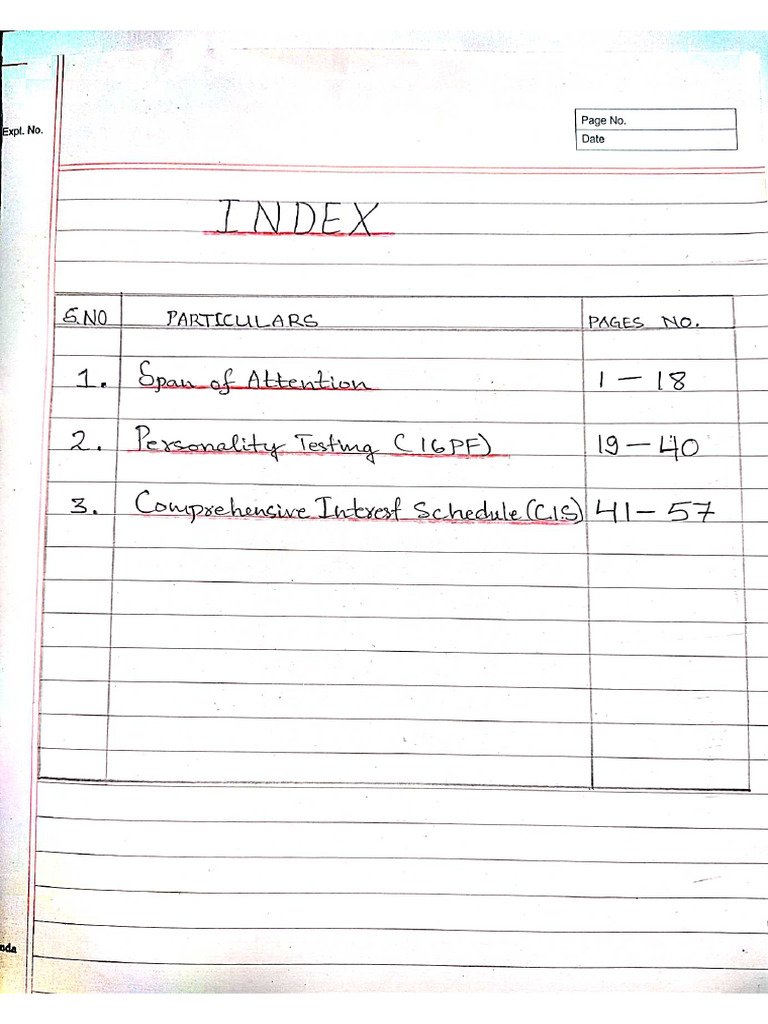 Expl. No.
Page No.
Date
INDEX
S.NO PARTICULARS PAGES NO.
1. Span of Attention 1 – 18
2. Personality Testing (16PF) 19 – 40
3. Comprehensive Intrest Schedule (C.I.S) 41 – 57